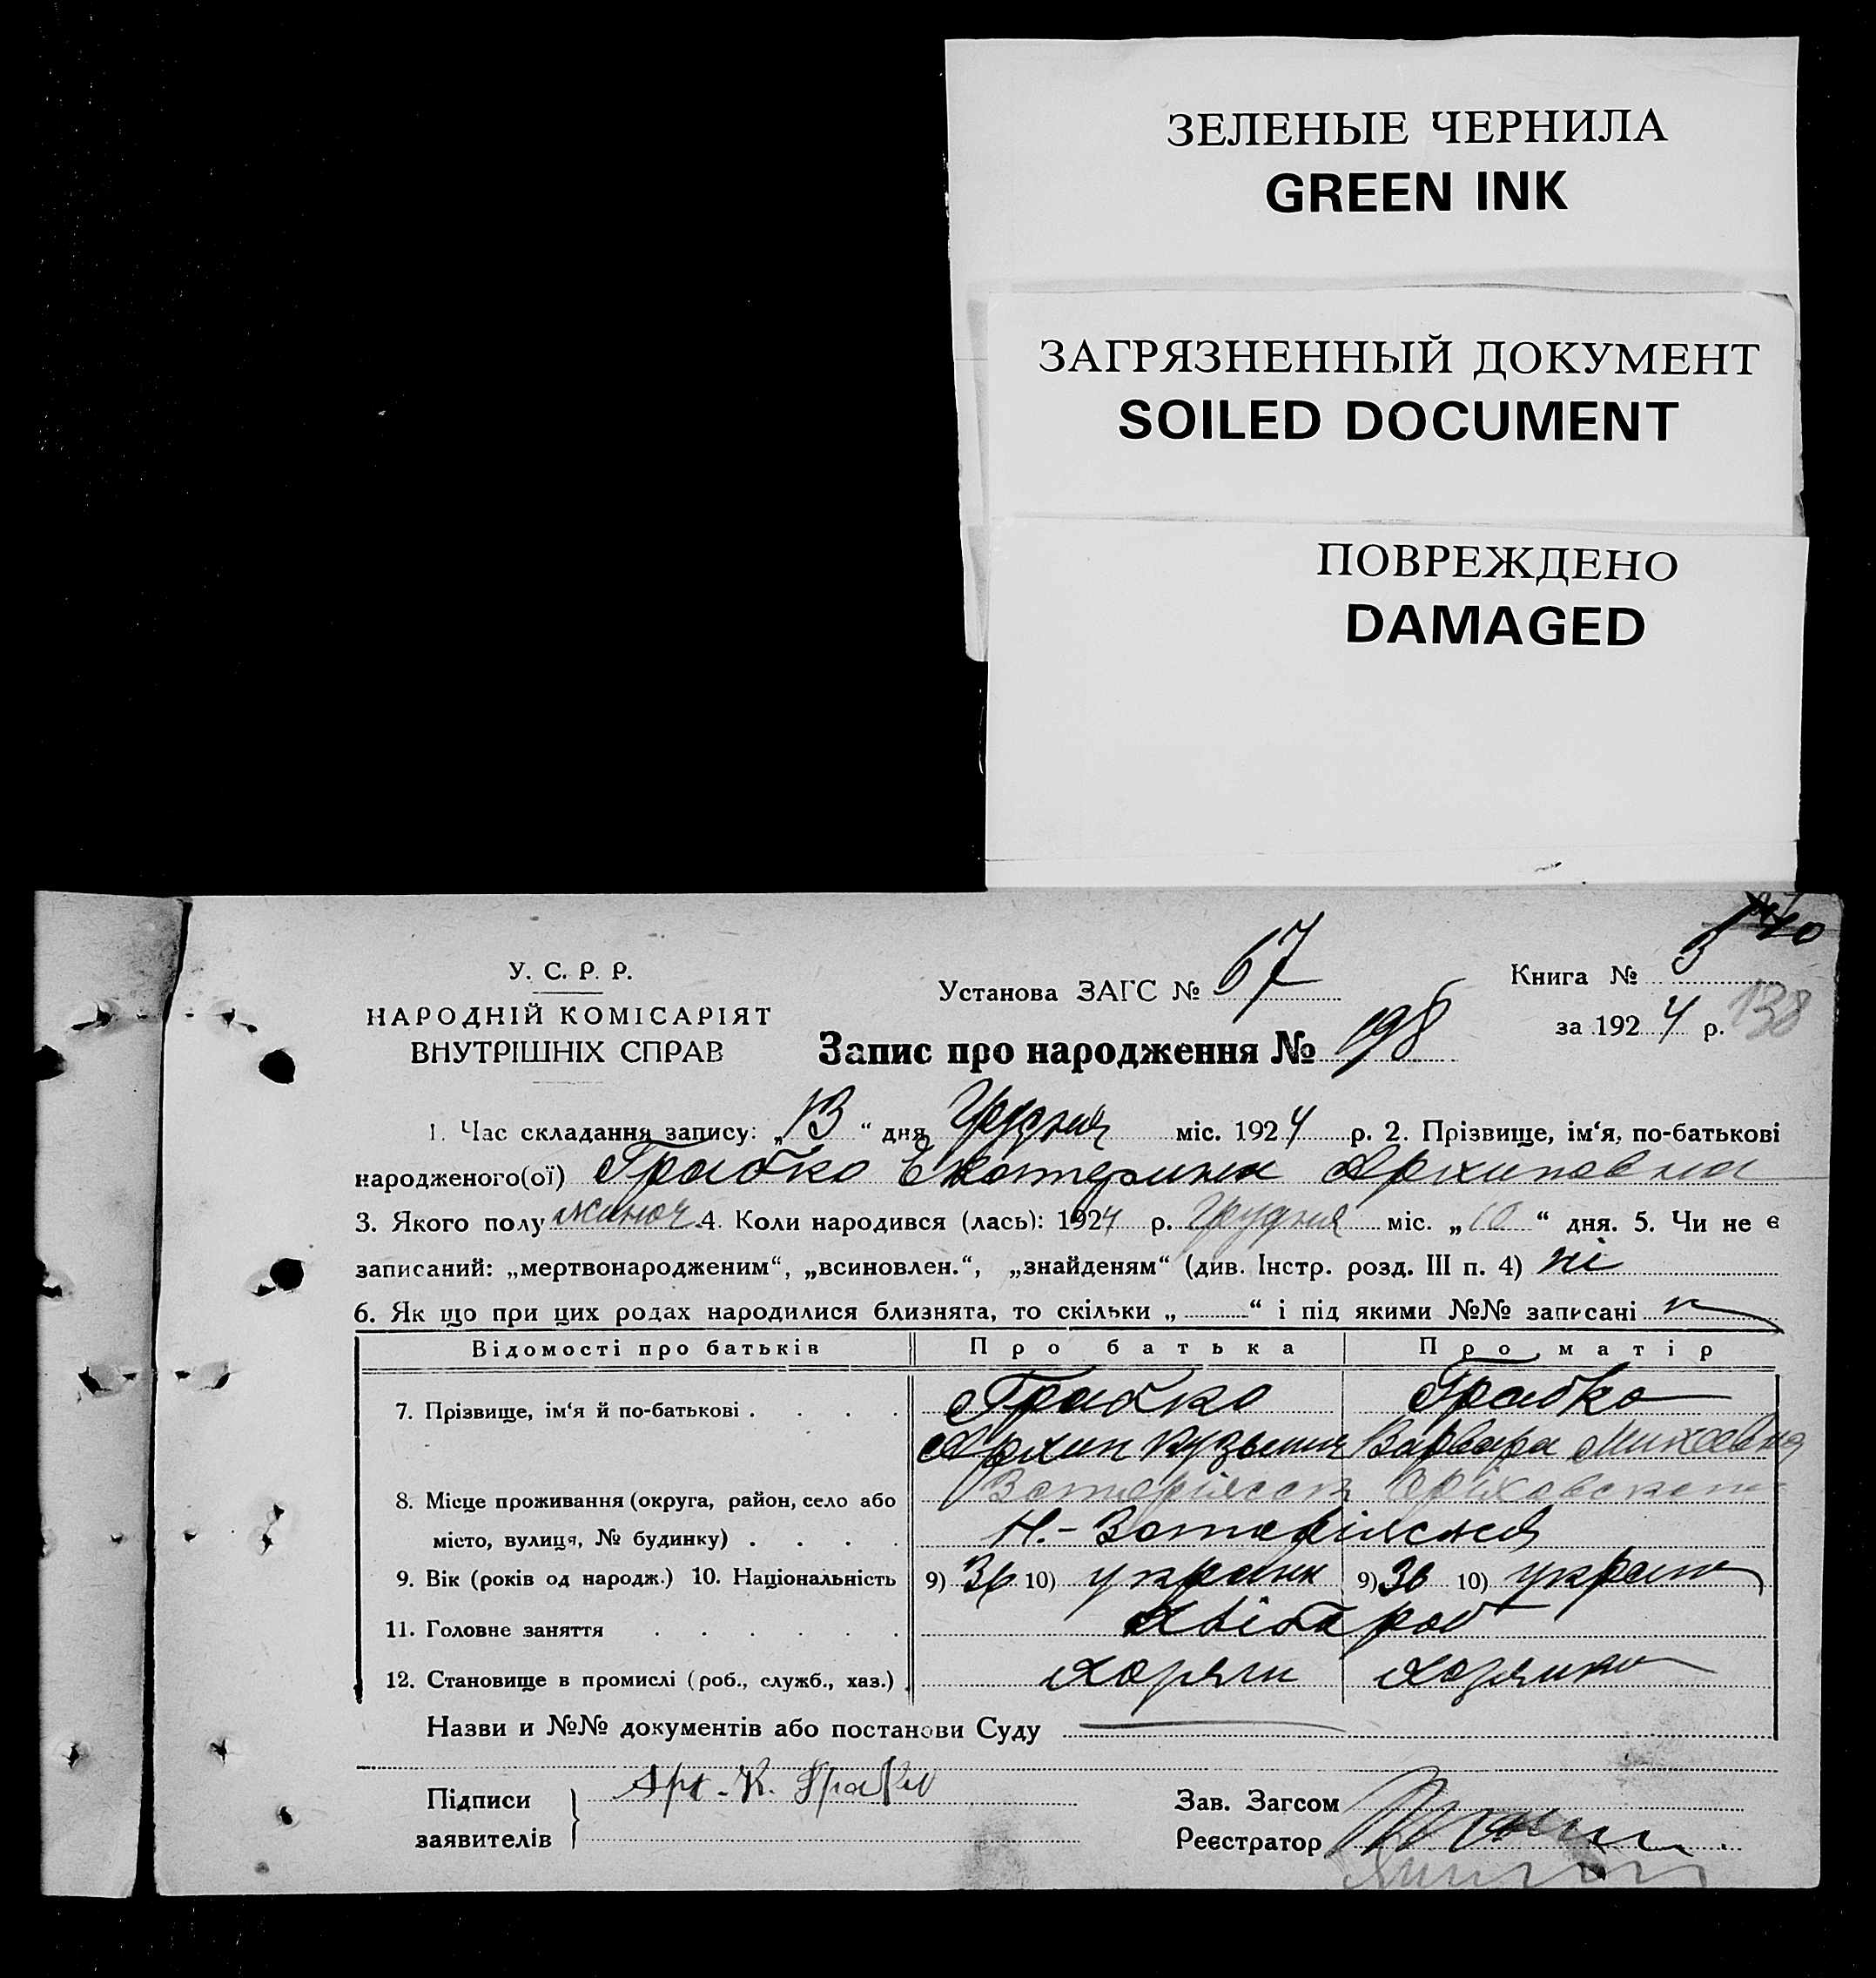 ЗЕЛЕНЫЕ ЧЕРНИЛА
GREEN INK
ЗАГРЯЗНЕННЫЙ ДОКУМЕНТ
SOILED DOCUMENT
ПОВРЕЖДЕНО
DAMAGED
У. С. Р. Р.
НАРОДНІЙ КОМІСАРІЯТ
ВНУТРІШНІХ СПРАВ
Установа ЗАГС № 67
Книга № 3
за 1924 р. 138
Запис про народження № 198
1. Час складання запису: „13“ дня Грудня міс. 1924 р. 2. Прізвище, ім‘я, по-батькові
народженого(ої) Грабко Екатерина Архиповна
3. Якого полу жиноч 4. Коли народився (лась): 1924 р. Грудня міс. „10“ дня. 5. Чи не є
записаний: „мертвонародженим“, „всиновлен.“, „знайденям“ (див. Інстр. розд. III п. 4) ні
6. Як що при цих родах народилися близнята, то скільки „ “ і під якими №№ записані
Відомості про батьків Про батька Про матір
7. Прізвище, ім‘я й по-батькові Грабко Грабко
Архип Кузьмич Варвара
8. Місце проживання (округа, район, село або
місто, вулиця, № будинку)
9. Вік (років од народж.) 10. Національність 9) 36 10) украин 9) 36 10) украин
11. Головне заняття хлібороб
12. Становище в промислі (роб., служб., хаз.)
Назви и №№ документів або постанови Суду
Підписи
заявителів
Арх. К. Грабко
Зав. Загсом
Реєстратор